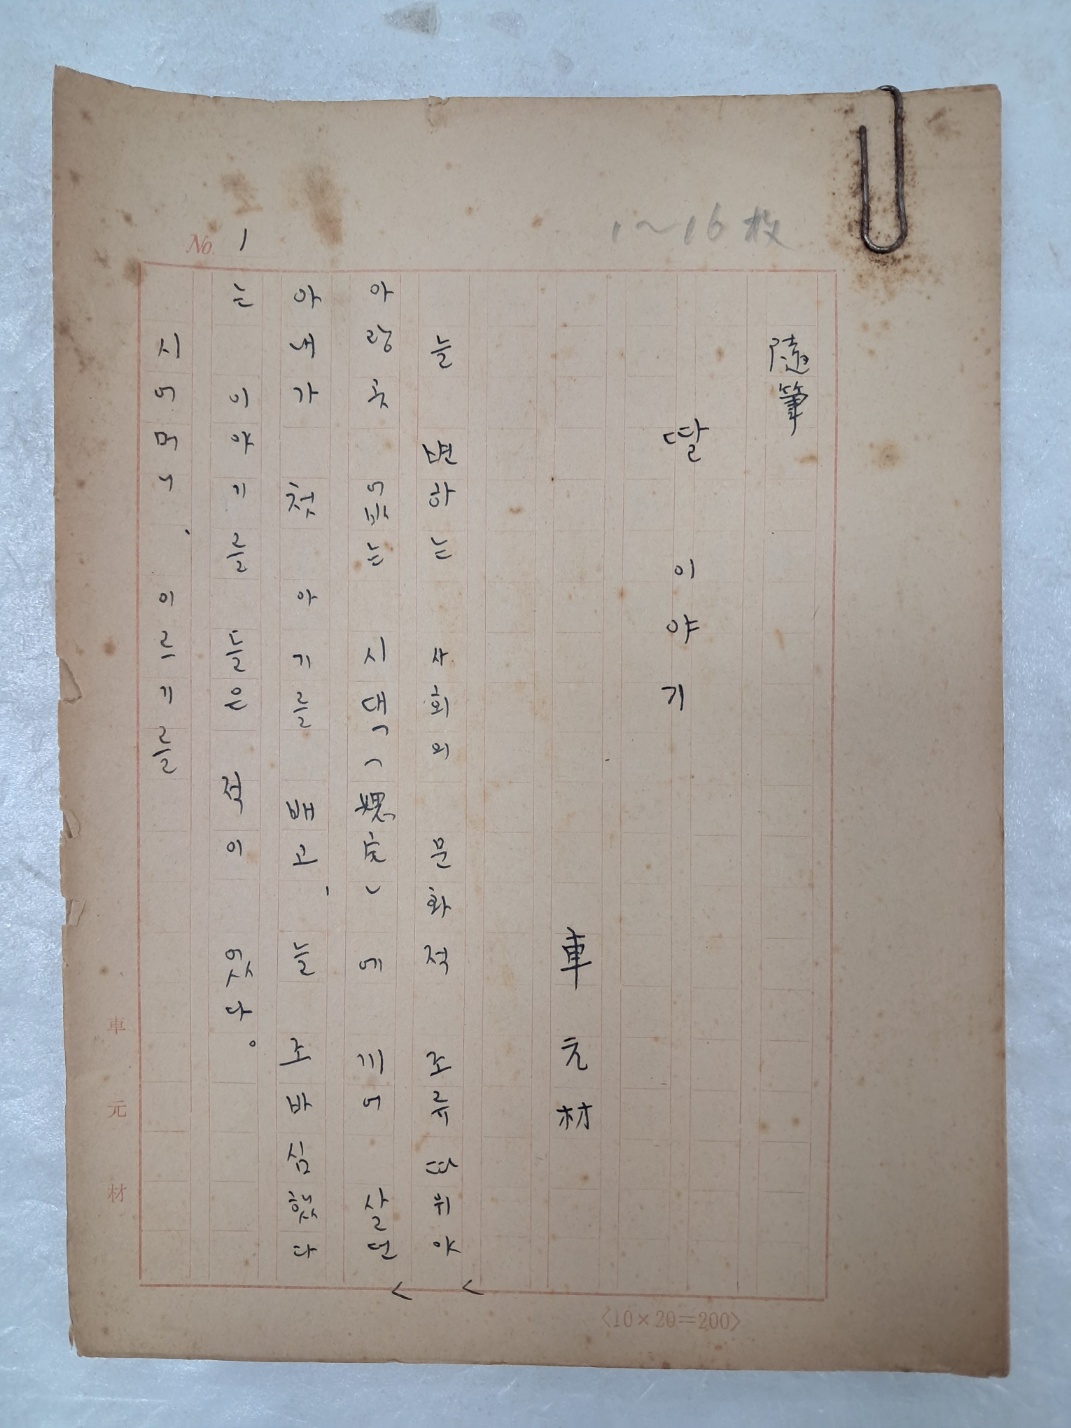 1~16 枚
No. 1
隨筆
딸 이야기
車元材
늘 변하는 사회의 문화적 조류 따위야
아랑곳 없는 시댁(媤宅)에 끼어 살던
아내가 첫 아기를 배고, 늘 조바심했다
는 이야기를 들은 적이 있다。
시어머니、 이르기를
車元材
〈10×20=200〉